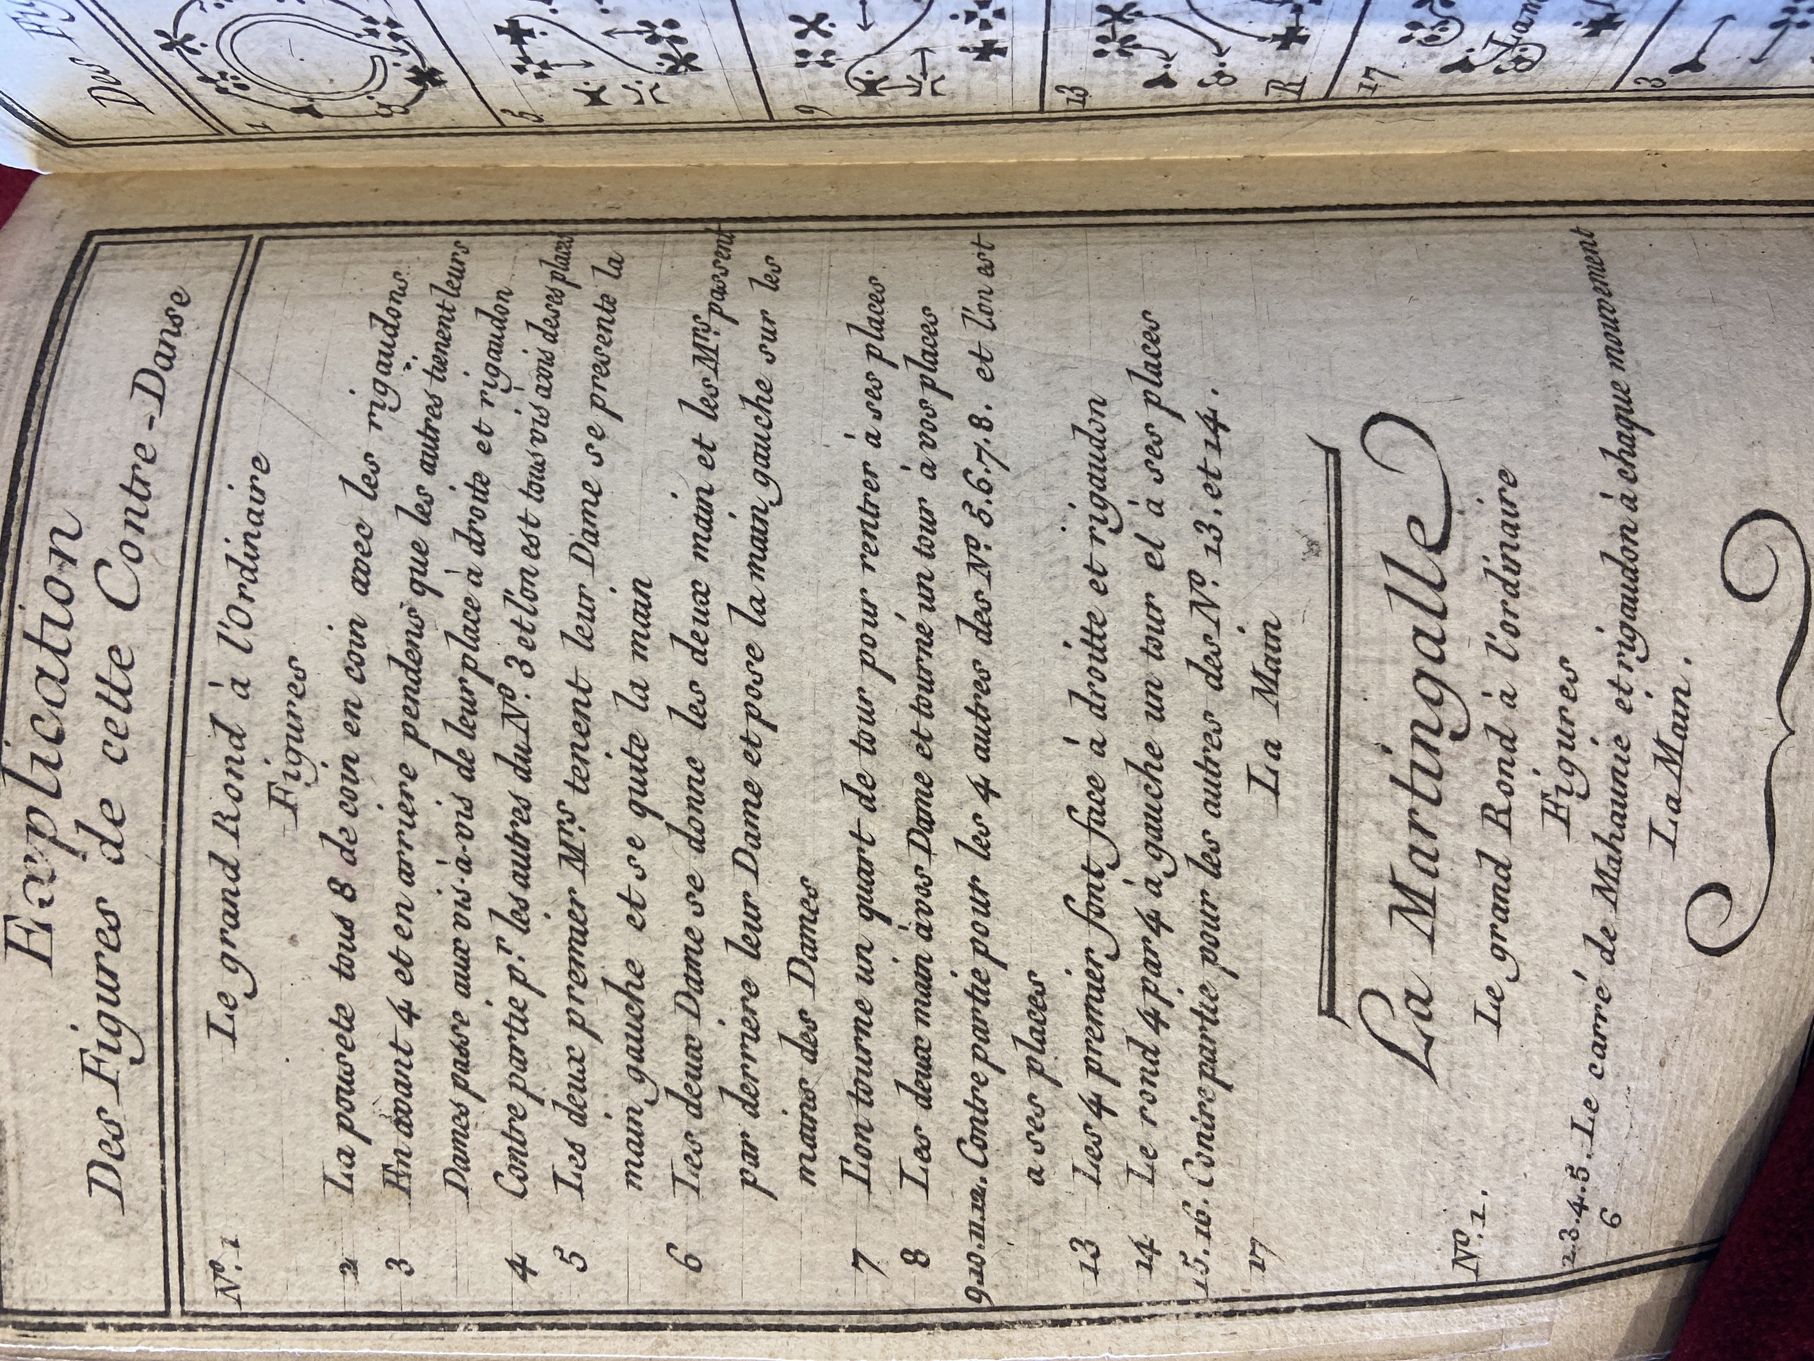 Explication
Des Figures de cette Contre-Danse
Nº. 1 Le grand Rond à l'Ordinaire
Figures
2 La pousete tous 8 de coin en coin avec les rigaudons
3 En avant 4 et en arriere pendens que les autres tienent leurs
Dames passe aux vis-à-vis de leur place à droite et rigaudon
4 Contre partie pr. les autres du Nº. 3 et l'on est tous vis avis de ses places
5 Les deux premier Mrs. tenent leur Dame se presente la
main gauche et se quite la main
6 Les deux Dame se donne les deux main et les Mrs. passent
par derriere leur Dame et pose la main gauche sur les
mains des Dames
7 L'on tourne un quart de tour pour rentrer à ses places
8 Les deux main à vos Dame et tourné un tour à vos places
9.10.11.12. Contre partie pour les 4 autres des Nº. 5.6.7.8. et l'on est
a ses places
13 Les 4 premier font face à droitte et rigaudon
14 Le rond 4 par 4 à gauche un tour el à ses places
15.16. Contre partie pour les autres des Nº. 13. et 14.
17 La Main
La Martingalle
Nº. 1. Le grand Rond à l'ordinaire
Figures
2.3.4.5. Le carré de Mahaunie et rigaudon à chaque mouvement
6 La Main.
Des
1
5
9
13
R
17
3